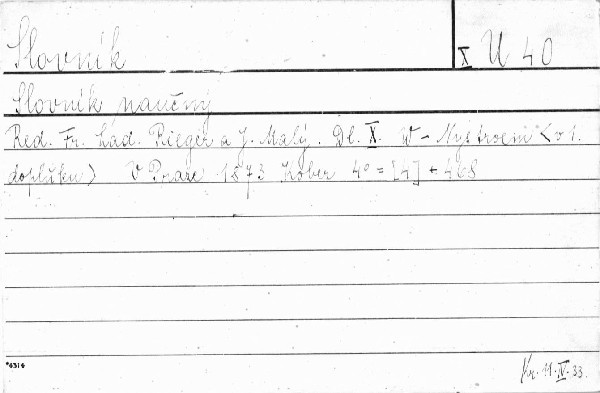 Slovník
X U 40
Slovník naučný
Red. Fr. Lad. Rieger a J. Malý. Dl. X. W - Nystroem <v 1.
doplňku> V Praze 1873 Kober 4° = [4] + 468
*6314
Kr. 11.IV.33.